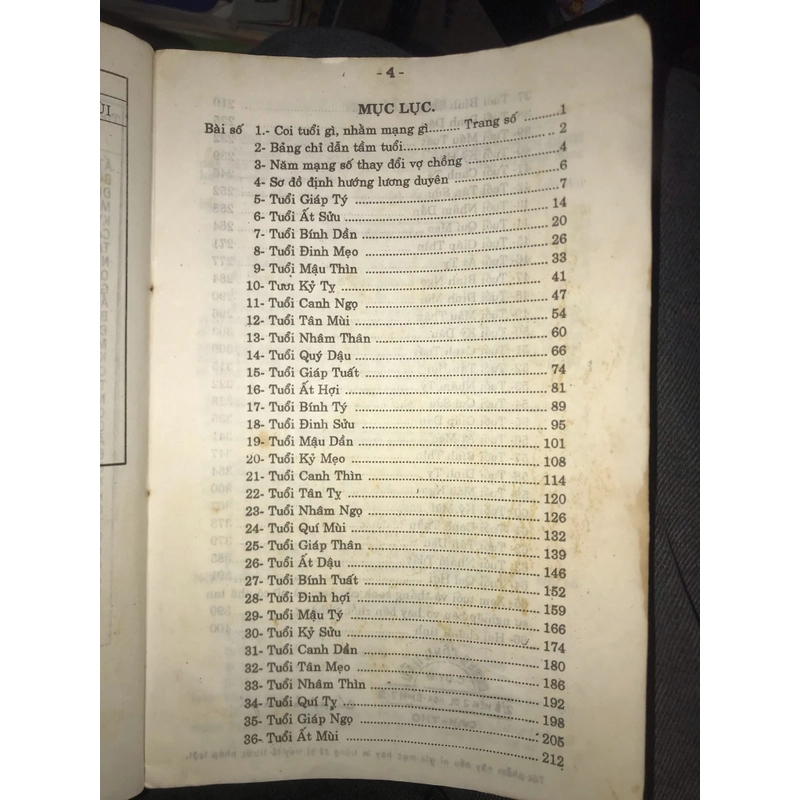 - 4 -
MỤC LỤC.
Bài số 1.- Coi tuổi gì, nhằm mạng gì........ Trang số ... 1
2- Bảng chỉ dẫn tầm tuổi........ 2
3- Năm mạng số thay đổi vợ chồng ........ 4
4- Sơ đồ định hướng lương duyên ........ 6
5- Tuổi Giáp Tý ........ 7
6- Tuổi Ất Sửu ........ 14
7- Tuổi Bính Dần ........ 20
8- Tuổi Đinh Mẹo ........ 26
9- Tuổi Mậu Thìn ........ 33
10- Tươi Kỷ Tỵ ........ 41
11- Tuổi Canh Ngọ ........ 47
12- Tuổi Tân Mùi ........ 54
13- Tuổi Nhâm Thân ........ 60
14- Tuổi Quý Dậu ........ 66
15- Tuổi Giáp Tuất ........ 74
16- Tuổi Ất Hợi ........ 81
17- Tuổi Bính Tý ........ 89
18- Tuổi Đinh Sửu ........ 95
19- Tuổi Mậu Dần ........ 101
20- Tuổi Kỷ Mẹo ........ 108
21- Tuổi Canh Thìn ........ 114
22- Tuổi Tân Tỵ ........ 120
23- Tuổi Nhâm Ngọ ........ 126
24- Tuổi Quí Mùi ........ 132
25- Tuổi Giáp Thân ........ 139
26- Tuổi Ất Dậu ........ 146
27- Tuổi Bính Tuất ........ 152
28- Tuổi Đinh hợi ........ 159
29- Tuổi Mậu Tý ........ 166
30- Tuổi Kỷ Sửu ........ 174
31- Tuổi Canh Dần ........ 180
32- Tuổi Tân Mẹo ........ 186
33- Tuổi Nhâm Thìn ........ 192
34- Tuổi Quí Tỵ ........ 198
35- Tuổi Giáp Ngọ ........ 205
36- Tuổi Ất Mùi ........ 212